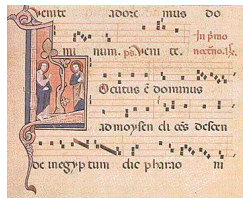 venite adore mus do
mi num. ps. Veni te.
In pͥmo
Ocutus ē dominus
ad moysen di cēs descen
de in egyp tum dic pharao